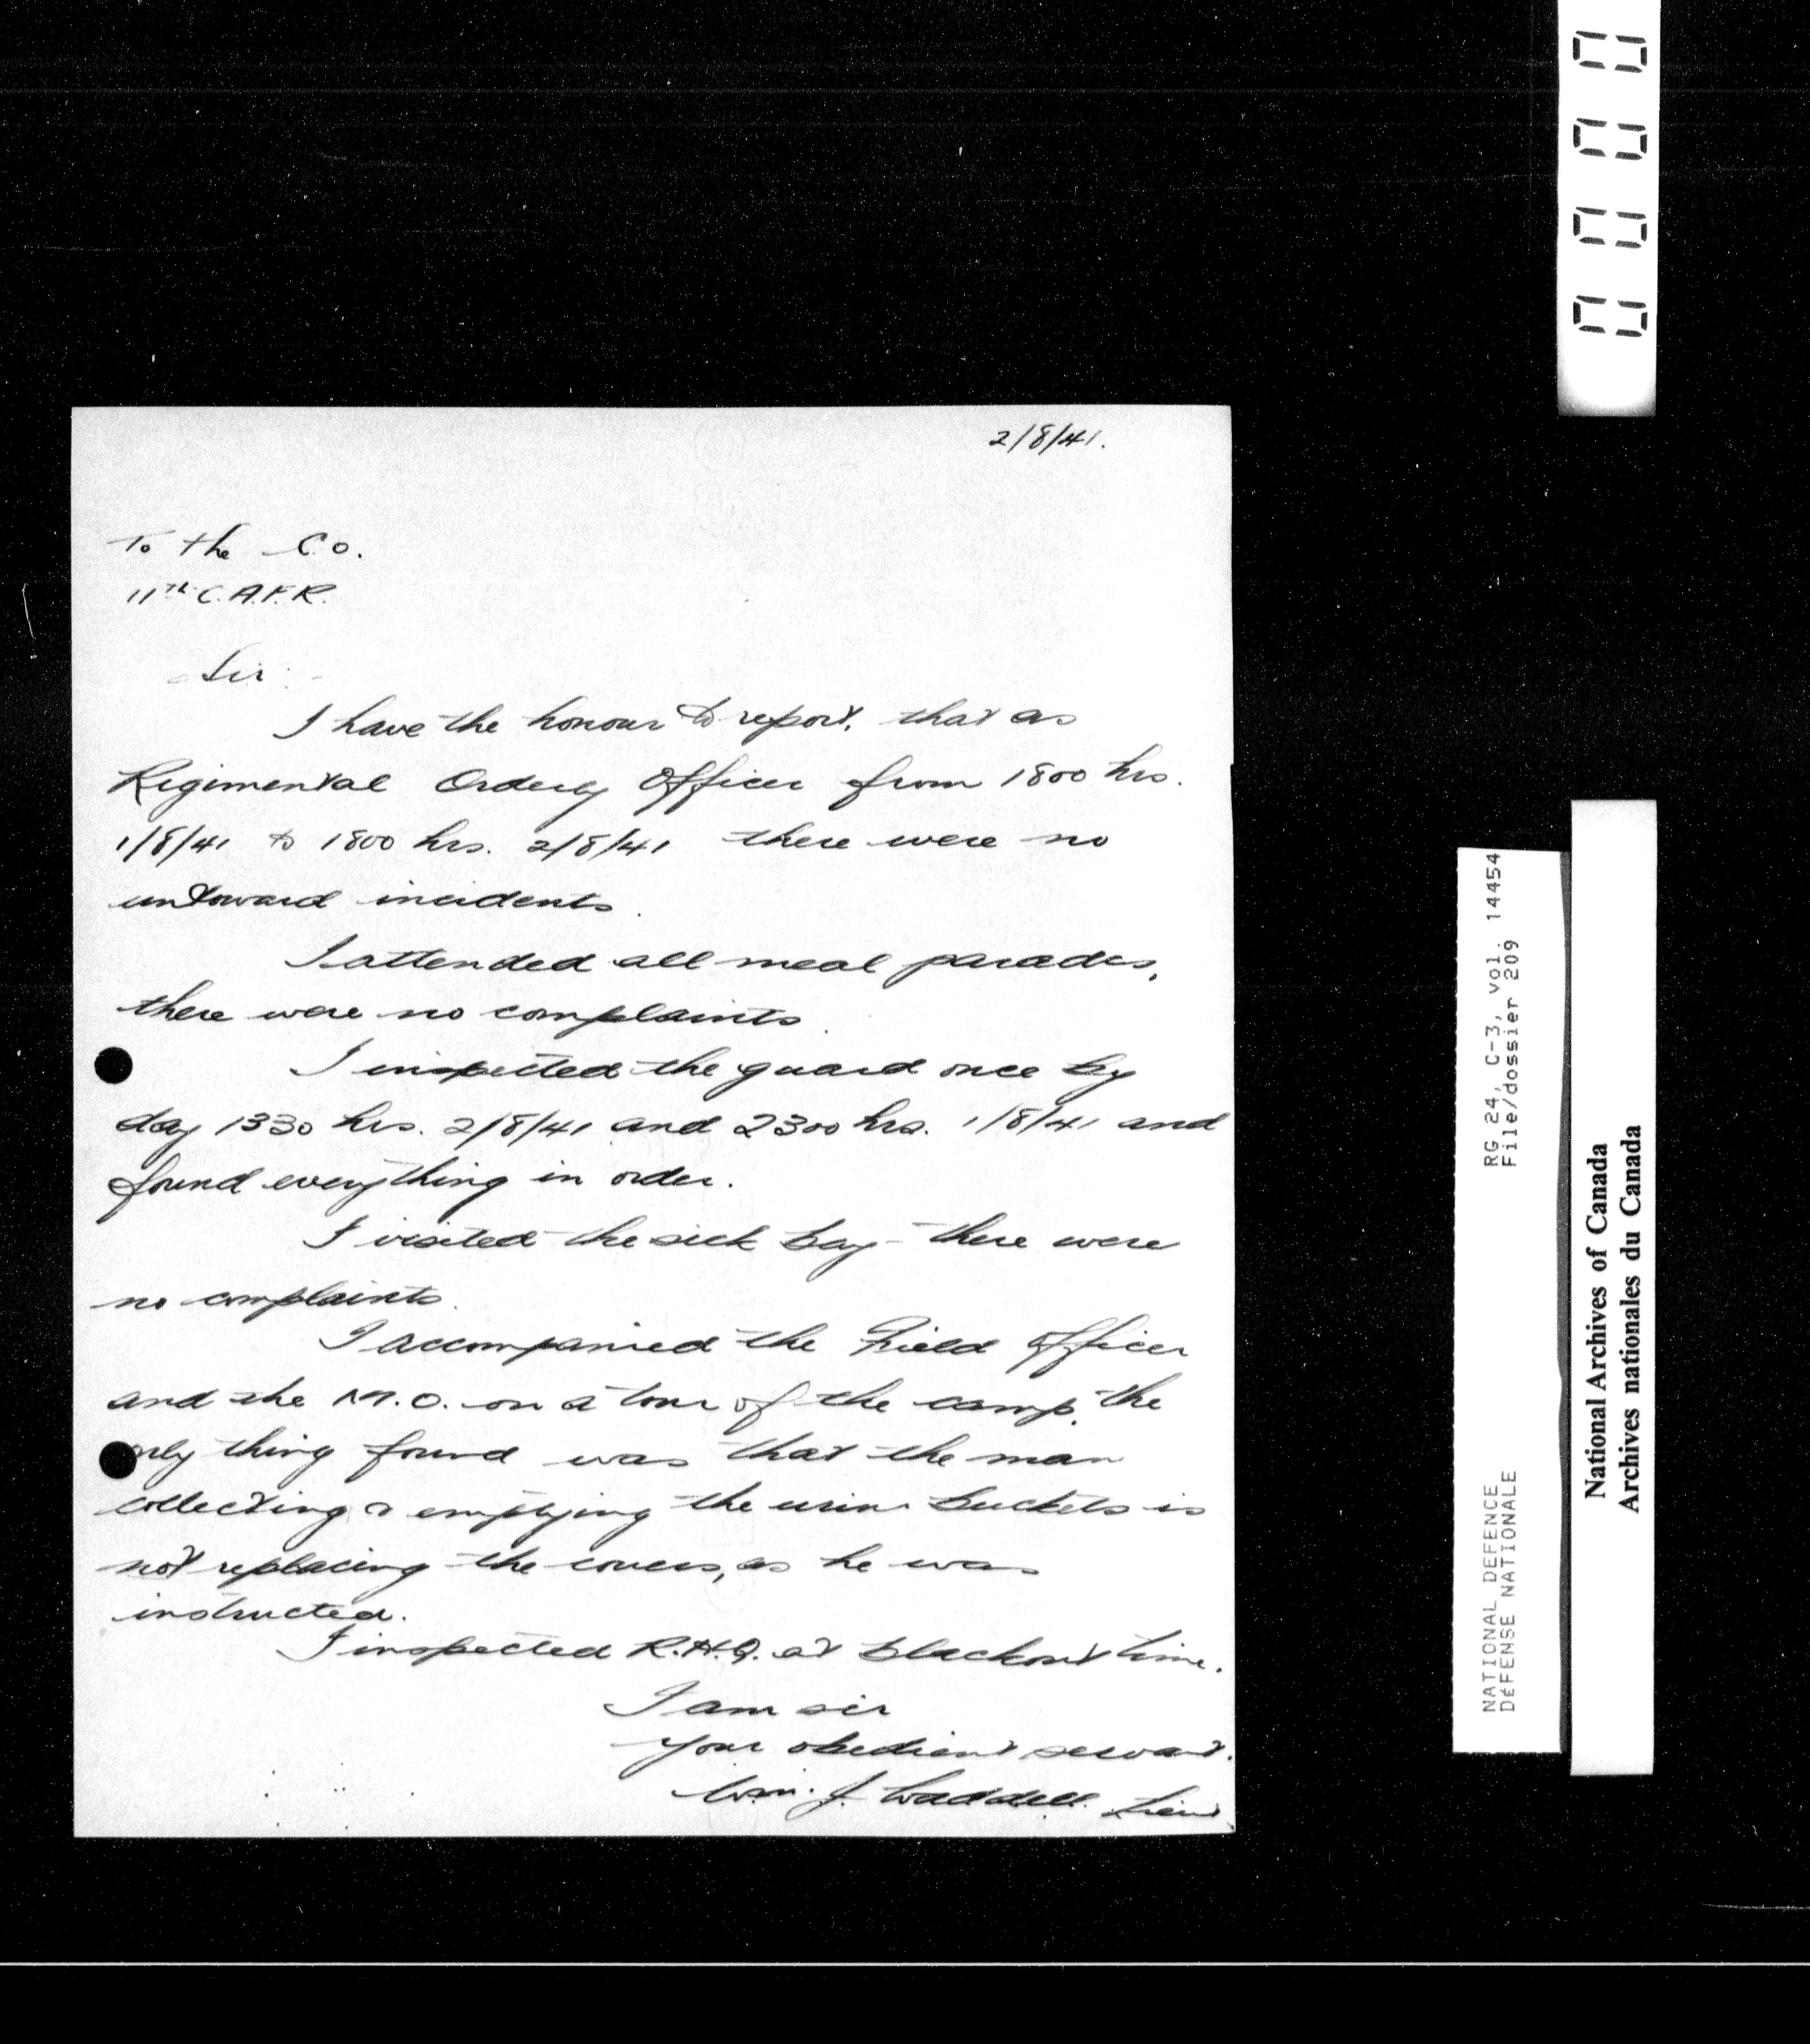 2/8/41.
To the C.O.
11th C.A.F.R.
Sir:-
I have the honour to report, that as
Regimental Orderly Officer from 1800 hrs.
1/8/41 to 1800 hrs. 2/8/41 there were no
untoward incidents.
I attended all meal parades,
there were no complaints.
I inspected the guard once by
day 1330 hrs. 2/8/41 and 2300 hrs. 1/8/41 and
found everything in order.
I visited the sick bay - there were
no complaints.
I accompanied the Field Officer
and the M.O. on a tour of the camp, the
only thing found was that the man
collecting & emptying the urine buckets is
not replacing the covers, as he was
instructed.
I inspected R.H.Q. at blackout time.
I am sir
your obedient servant.
Wm. J. Waddell. Lieut
0000
RG 24, C-3, vol. 14454
File/dossier 209
NATIONAL DEFENCE
DÉFENSE NATIONALE
National Archives of Canada
Archives nationales du Canada